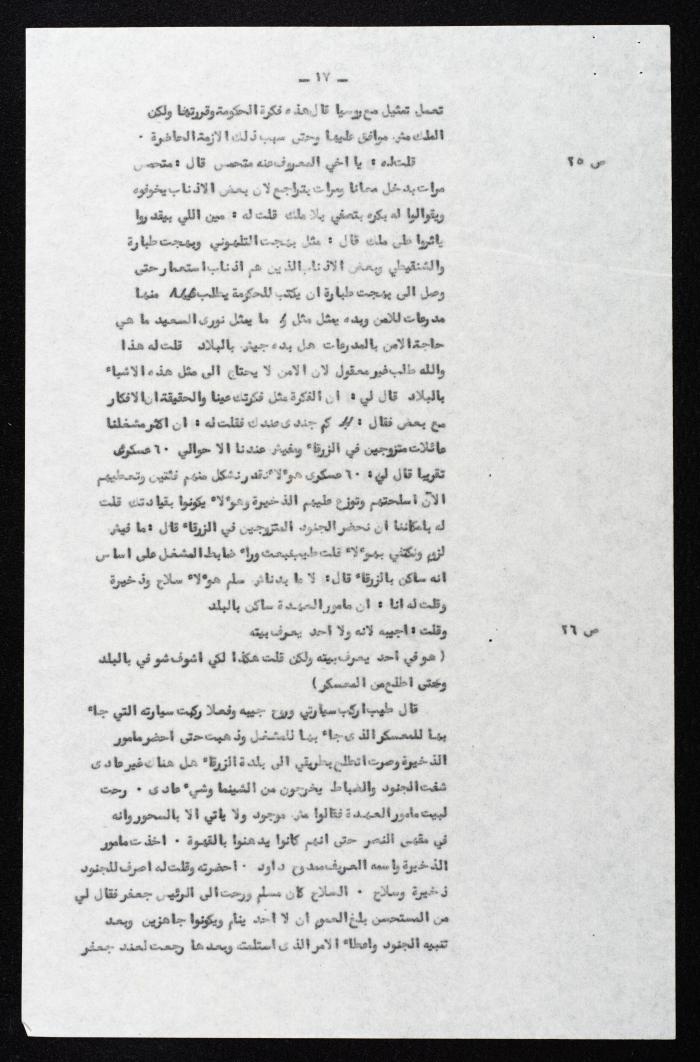 ـ ١٧ ـ
تعمل تمثيل مع روسيا قال هذه فكرة الحكومة وقررتها ولكن
الملك مش موافق عليها وحتى سبب ذلك الازمة الحاضرة .
ص ٢٥
قلت له : يا اخي المعروف عنه متحمس قال : متحمس
مرات بدخل معانا ومرات بتراجع لان بعض الاذناب يخوفوه
ويقولوا له بكره بتصفي بلا ملك قلت له : مين اللي بيقدروا
ياثروا على ملك قال : مثل بهجت التلهوني وبهجت طبارة
والشنقيطي وبعض الاذناب الذين هم اذناب استعمار حتى
وصل الى بهجت طبارة ان يكتب للحكومة يطلب منها
مدرعات للامن وبده يمثل مثل ما يمثل نورى السعيد ما هي
حاجة الامن بالمدرعات هل بده جيش بالبلاد قلت له هذا
والله طلب غير معقول لان الامن لا يحتاج الى مثل هذه الاشياء
بالبلاد قال لي : ان الفكرة مثل فكرتك عينا والحقيقة ان الافكار
مع بعض فقال : كم جندى عندك فقلت له : ان اكثر مشغلنا
عائلات متزوجين في الزرقاء ومفيش عندنا الا حوالي ٦٠ عسكرى
تقريبا قال لي : ٦٠ عسكرى هؤلاء نقدر نشكل منهم فئتين وتعطيهم
الآن اسلحتهم وتوزع عليهم الذخيرة وهؤلاء يكونوا بقيادتك قلت
له بامكاننا ان نحضر الجنود المتزوجين في الزرقاء قال : ما فيش
لزوم ونكتفي بهؤلاء قلت طيب نبعث وراء ضابط المشغل على اساس
انه ساكن بالزرقاء قال : لا ما بدناش سلم هؤلاء سلاح وذخيرة
وقلت له انا : ان مامور العهدة ساكن بالبلد
ص ٢٦
وقلت : اجيبه لانه ولا احد يعرف بيته
( هو في احد يعرف بيته ولكن قلت هكذا لكي اشوف شو في بالبلد
وبختى اطلع من المعسكر )
قال طيب اركب سيارتي وروح جيبه وفعلا ركبت سيارته التي جاء
بها للمعسكر الذى جاء بها للمشغل وذهبت حتى احضر مامور
الذخيرة وصرت اتطلع بطريقي الى بلدة الزرقاء هل هناك غير عادى
شفت الجنود والضباط يخرجون من الشينما وشيء عادى . رحت
لبيت مامور العهدة فقالوا مش موجود ولا ياتي الا بالسحور وانه
في مقهى النصر حتى انهم كانوا يدهنوا بالقهوة . اخذت مامور
الذخيرة واسمه العريف ممدوح داود . احضرته وقلت له اصرف للجنود
ذخيرة وسلاح . السلاح كان مسلم ورحت الى الرئيس جعفر فقال لي
من المستحسن بلغ العموم ان لا احد ينام ويكونوا جاهزين وبعد
تنبيه الجنود واعطاء الامر الذى استلمته وبعدها رجعت لعند جعفر